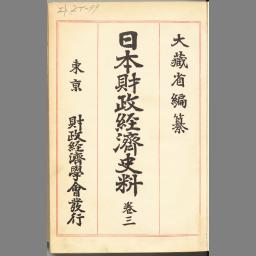 大藏省編纂
日本財政經濟史料 卷三
東京 財政經濟學會發行